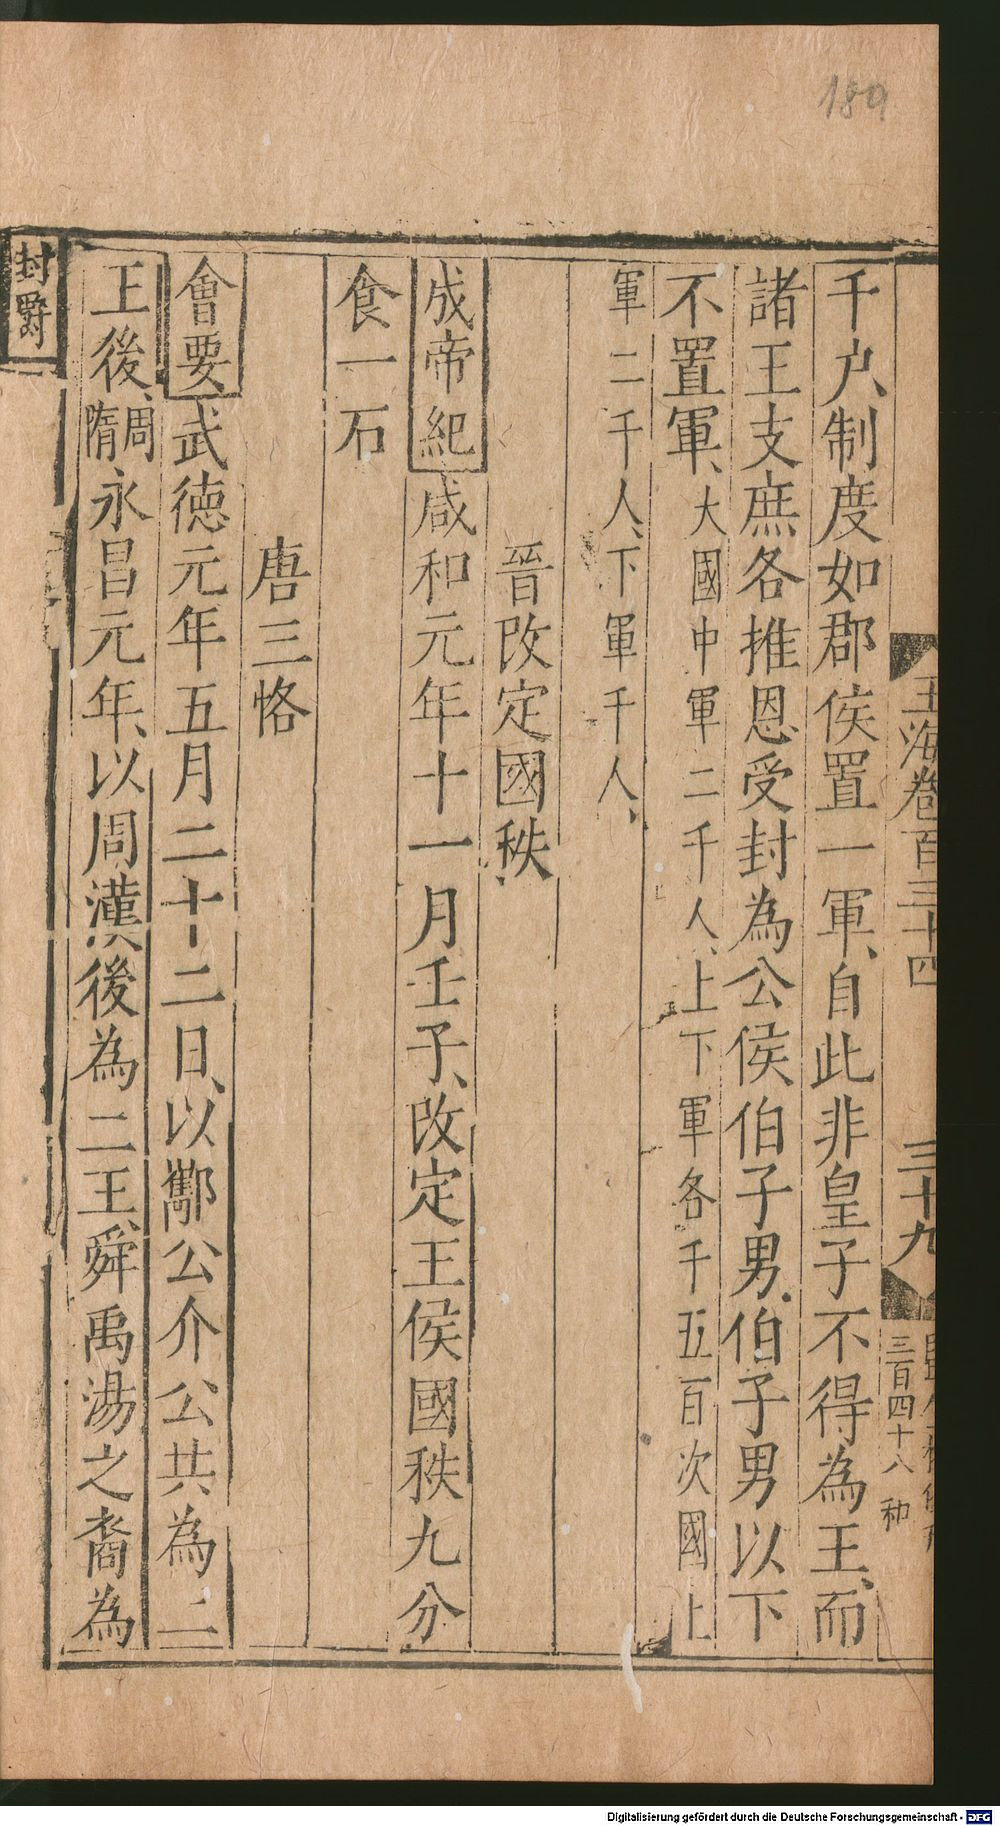 189
玉海卷百三十四
三十九
三百四十八 和
千户制度如郡侯置一軍自此非皇子不得為王而
諸王支庶各推恩受封為公侯伯子男伯子男以下
不置軍大國中軍二千人上下軍各千五百次國上
軍二千人下軍千人
晉改定國秩
成帝紀咸和元年十一月壬子改定王侯國秩九分
食一石
唐三恪
會要武德元年五月二十二日以酅公介公共為二
王後周隋永昌元年以周漢後為二王舜禹湯之裔為
封爵
Digitalisierung gefördert durch die Deutsche Forschungsgemeinschaft - DFG